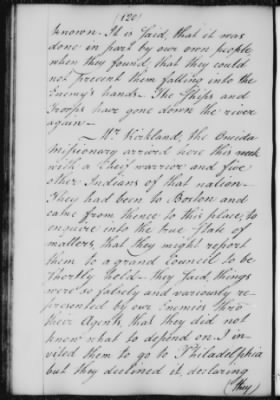 (120)
known. It is said, that it was
done in part by our own people
when they found, that they could
not prevent them falling into the
Enemy's hands. The Ships and
Troops have gone down the river
again —
Mr. Kirkland, the Oneida
Missionary arrived here this week
with a Cheif warrior and five
other Indians of that nation —
They had been to Boston and
came from thence to this place, to
enquire into the true State of
matters, that they might report
them to a grand Council to be
shortly held — they said, things
were so falsely and variously re-
presented by our Enemies thro
their Agents, that they did not
know what to depend on. I in-
vited them to go to Philadelphia
but they declined it, declaring
(they)